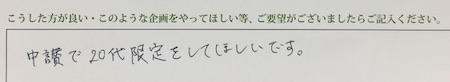 こうした方が良い・このような企画をやってほしい等、ご要望がございましたらご記入ください。
中讃で20代限定をしてほしいです。